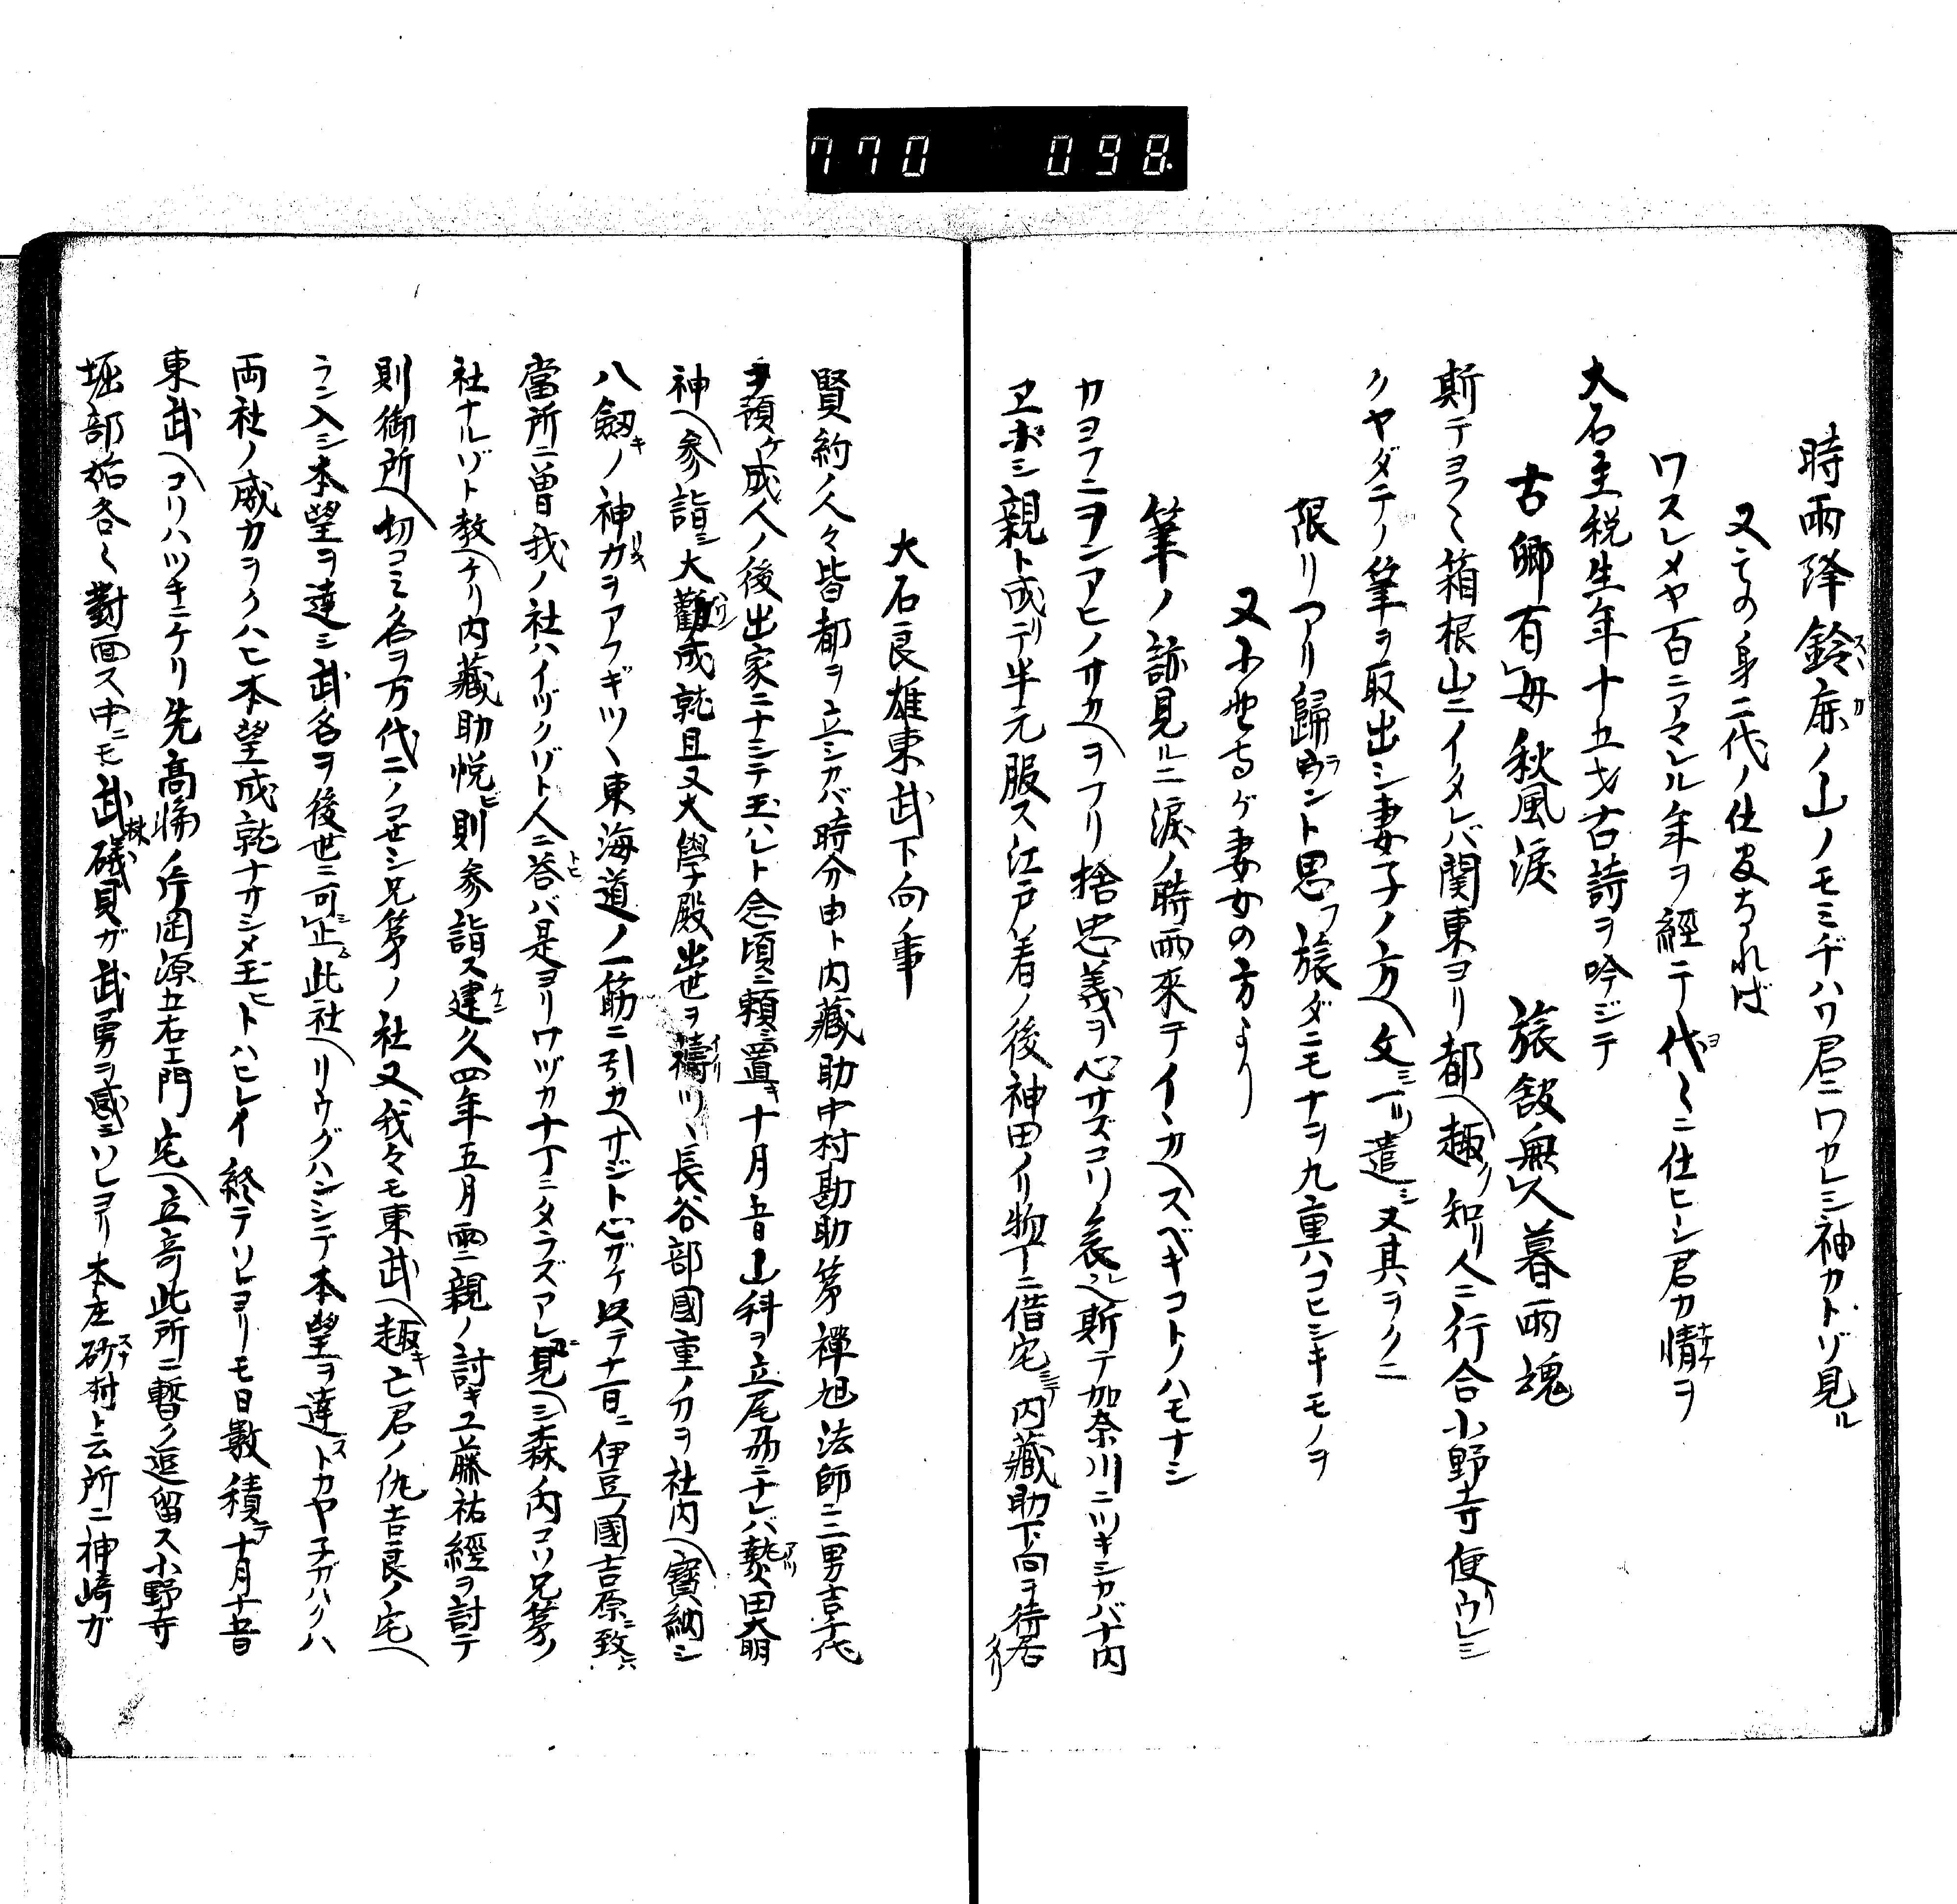 770 098
時雨降鈴鹿ノ山ノモミヂハワ君ニワカレシ神カトゾ見ル
又この身二代ノ仕まなれば
ワスレメヤ百ニアマル年ヲ經テ代々ニ仕ヒシ君カ情ヲ
大石主税生年十五才古詩ヲ吟ジテ
古郷有母秋風涙 旅舘無人暮雨魂
斯テヨウ〳〵箱根山ニイタレバ関東ヨリ都ヘ趣ク知リ人ニ行合小野寺便リウレシ
クヤダテノ筆ヲ取出シ妻子ノ方ヘ文ミ一ツ遣シ又其ヲクニ
限リアリ歸ラント思フ旅ダニモナヲ九重ハコヒシキモノヲ
又小野寺ゲ妻女の方より
筆ノ跡見ルニ涙ノ時雨來テイヽカヘスベキコトノハモナシ
カヨフニヲンアヒノサカヘヲフリ捨忠義ヲ心サスコソ哀レ斯テ加奈川ニツキシカバ十内
ヱボシ親ト成リテ半元服ス江戸着ノ後神田ノリ物丁ニ借宅シテ内藏助下向ヲ待居タリ
大石良雄東武下向ノ事
賢約ノ人々皆都ヲ立シカバ時分申ト内藏助中村勘助弟禪旭法師ニ三男吉千代
ヲ預ケ成人ノ後出家ニナシテ玉ハレト念頃ニ頼ミ置キ十月五日山科ヲ立尾刕ニナレバ熱田大明
神ヘ参詣シ大觀成就且又大學殿出世ヲ禱リツヽ長谷部國重ノ刀ヲ社内ヘ寶納シ
八劔ノ神力ヲアフギツヽ東海道ノ一筋ニ引カヘサジト心ガケ晩テ十一日ニ伊豆ノ國吉原ニ致ル
當所ニ曽我ノ社ハイヅクゾト人ニ荅バ是ヨリワヅカ十丁ニタラズアレニ見ヘシ森ノ内コソ兄弟ノ
社ナルゾト教ヘケリ内藏助悦ヒ則参詣ス建久四年五月雨ニ親ノ討キ工藤祐經ヲ討テ
則御所ヘ切コミ名ヲ万代ニノコせシ兄弟ノ社又我々モ東武ヘ趣キ亡君ノ仇吉良ノ宅ヘ
ラン入シ本望ヲ達シ武名ヲ後世ニ可止此社ヘリウグハンシテ本望ヲ達ストカヤチガハクハ
両社ノ威カヲクハヒ本望成就ナサシメ玉ヒトハヒレイ終テソレヨリモ日數積テ十月十五日
東武ヘコソハツキニケリ先高縄ノ片岡源五右エ門宅ヘ立寄此所ニ暫ク逗留ス小野寺
堀部祐各々對面ス中ニモ武林礒貝ガ武勇ヲ感シソレヨリ本庄砂村ト云所ニ神崎ガ